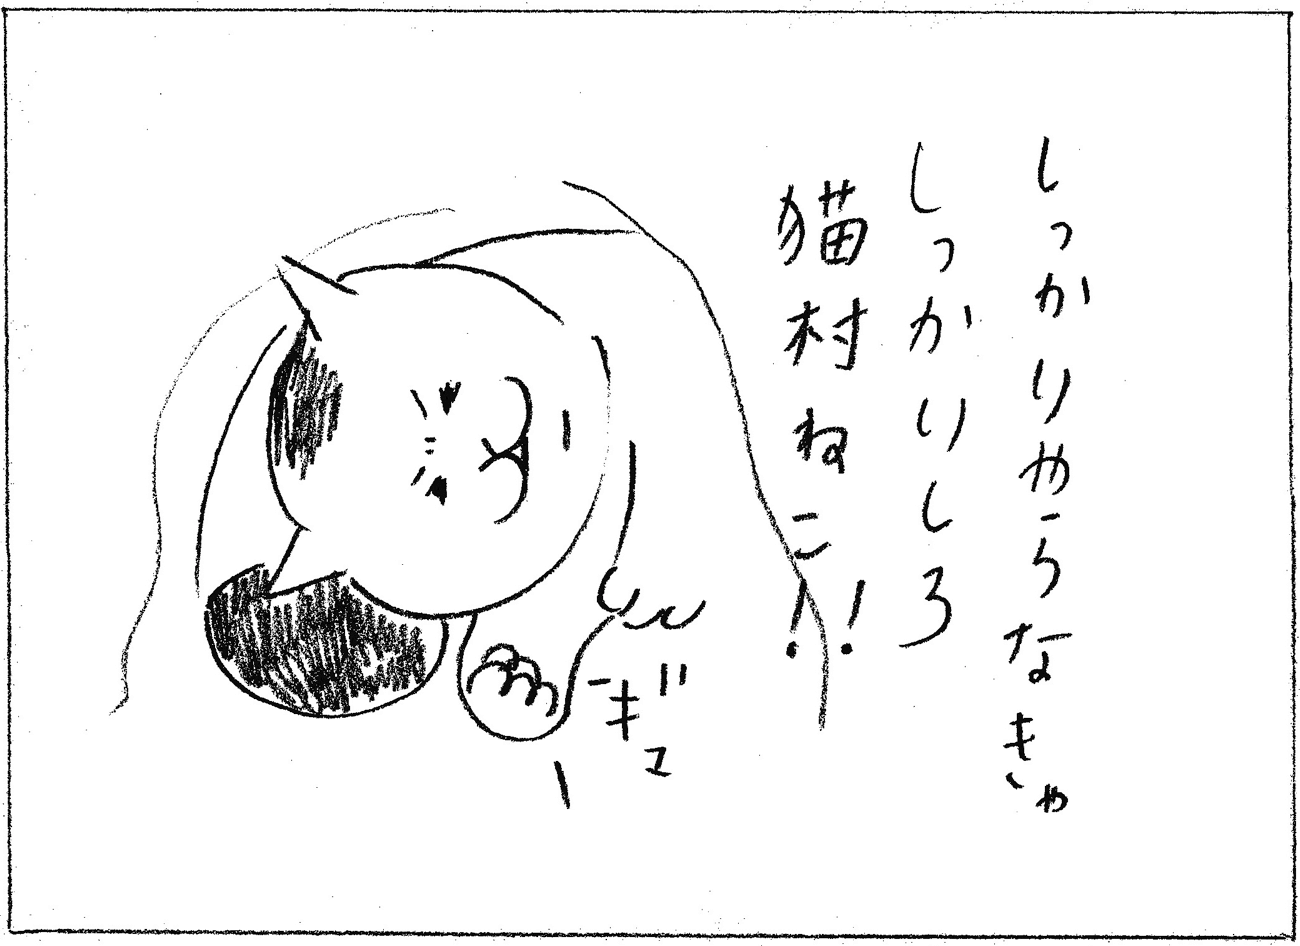 しっかりやらなきゃ
しっかりしろ
猫村ねこ!!
ギュ